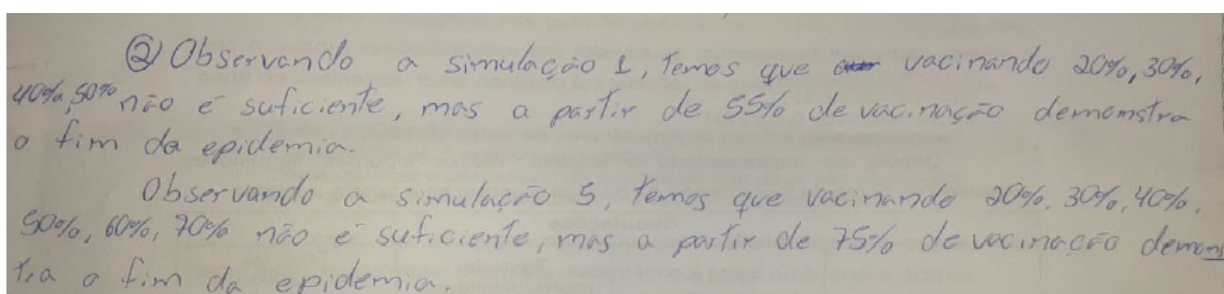 ② Observando a simulação 1, temos que vacinando 20%, 30%,
40%, 50% não é suficiente, mas a partir de 55% de vacinação demonstra
o fim da epidemia.
Observando a simulação 5, temos que vacinando 20%, 30%, 40%,
50%, 60%, 70% não é suficiente, mas a partir de 75% de vacinação demons
tra o fim da epidemia.